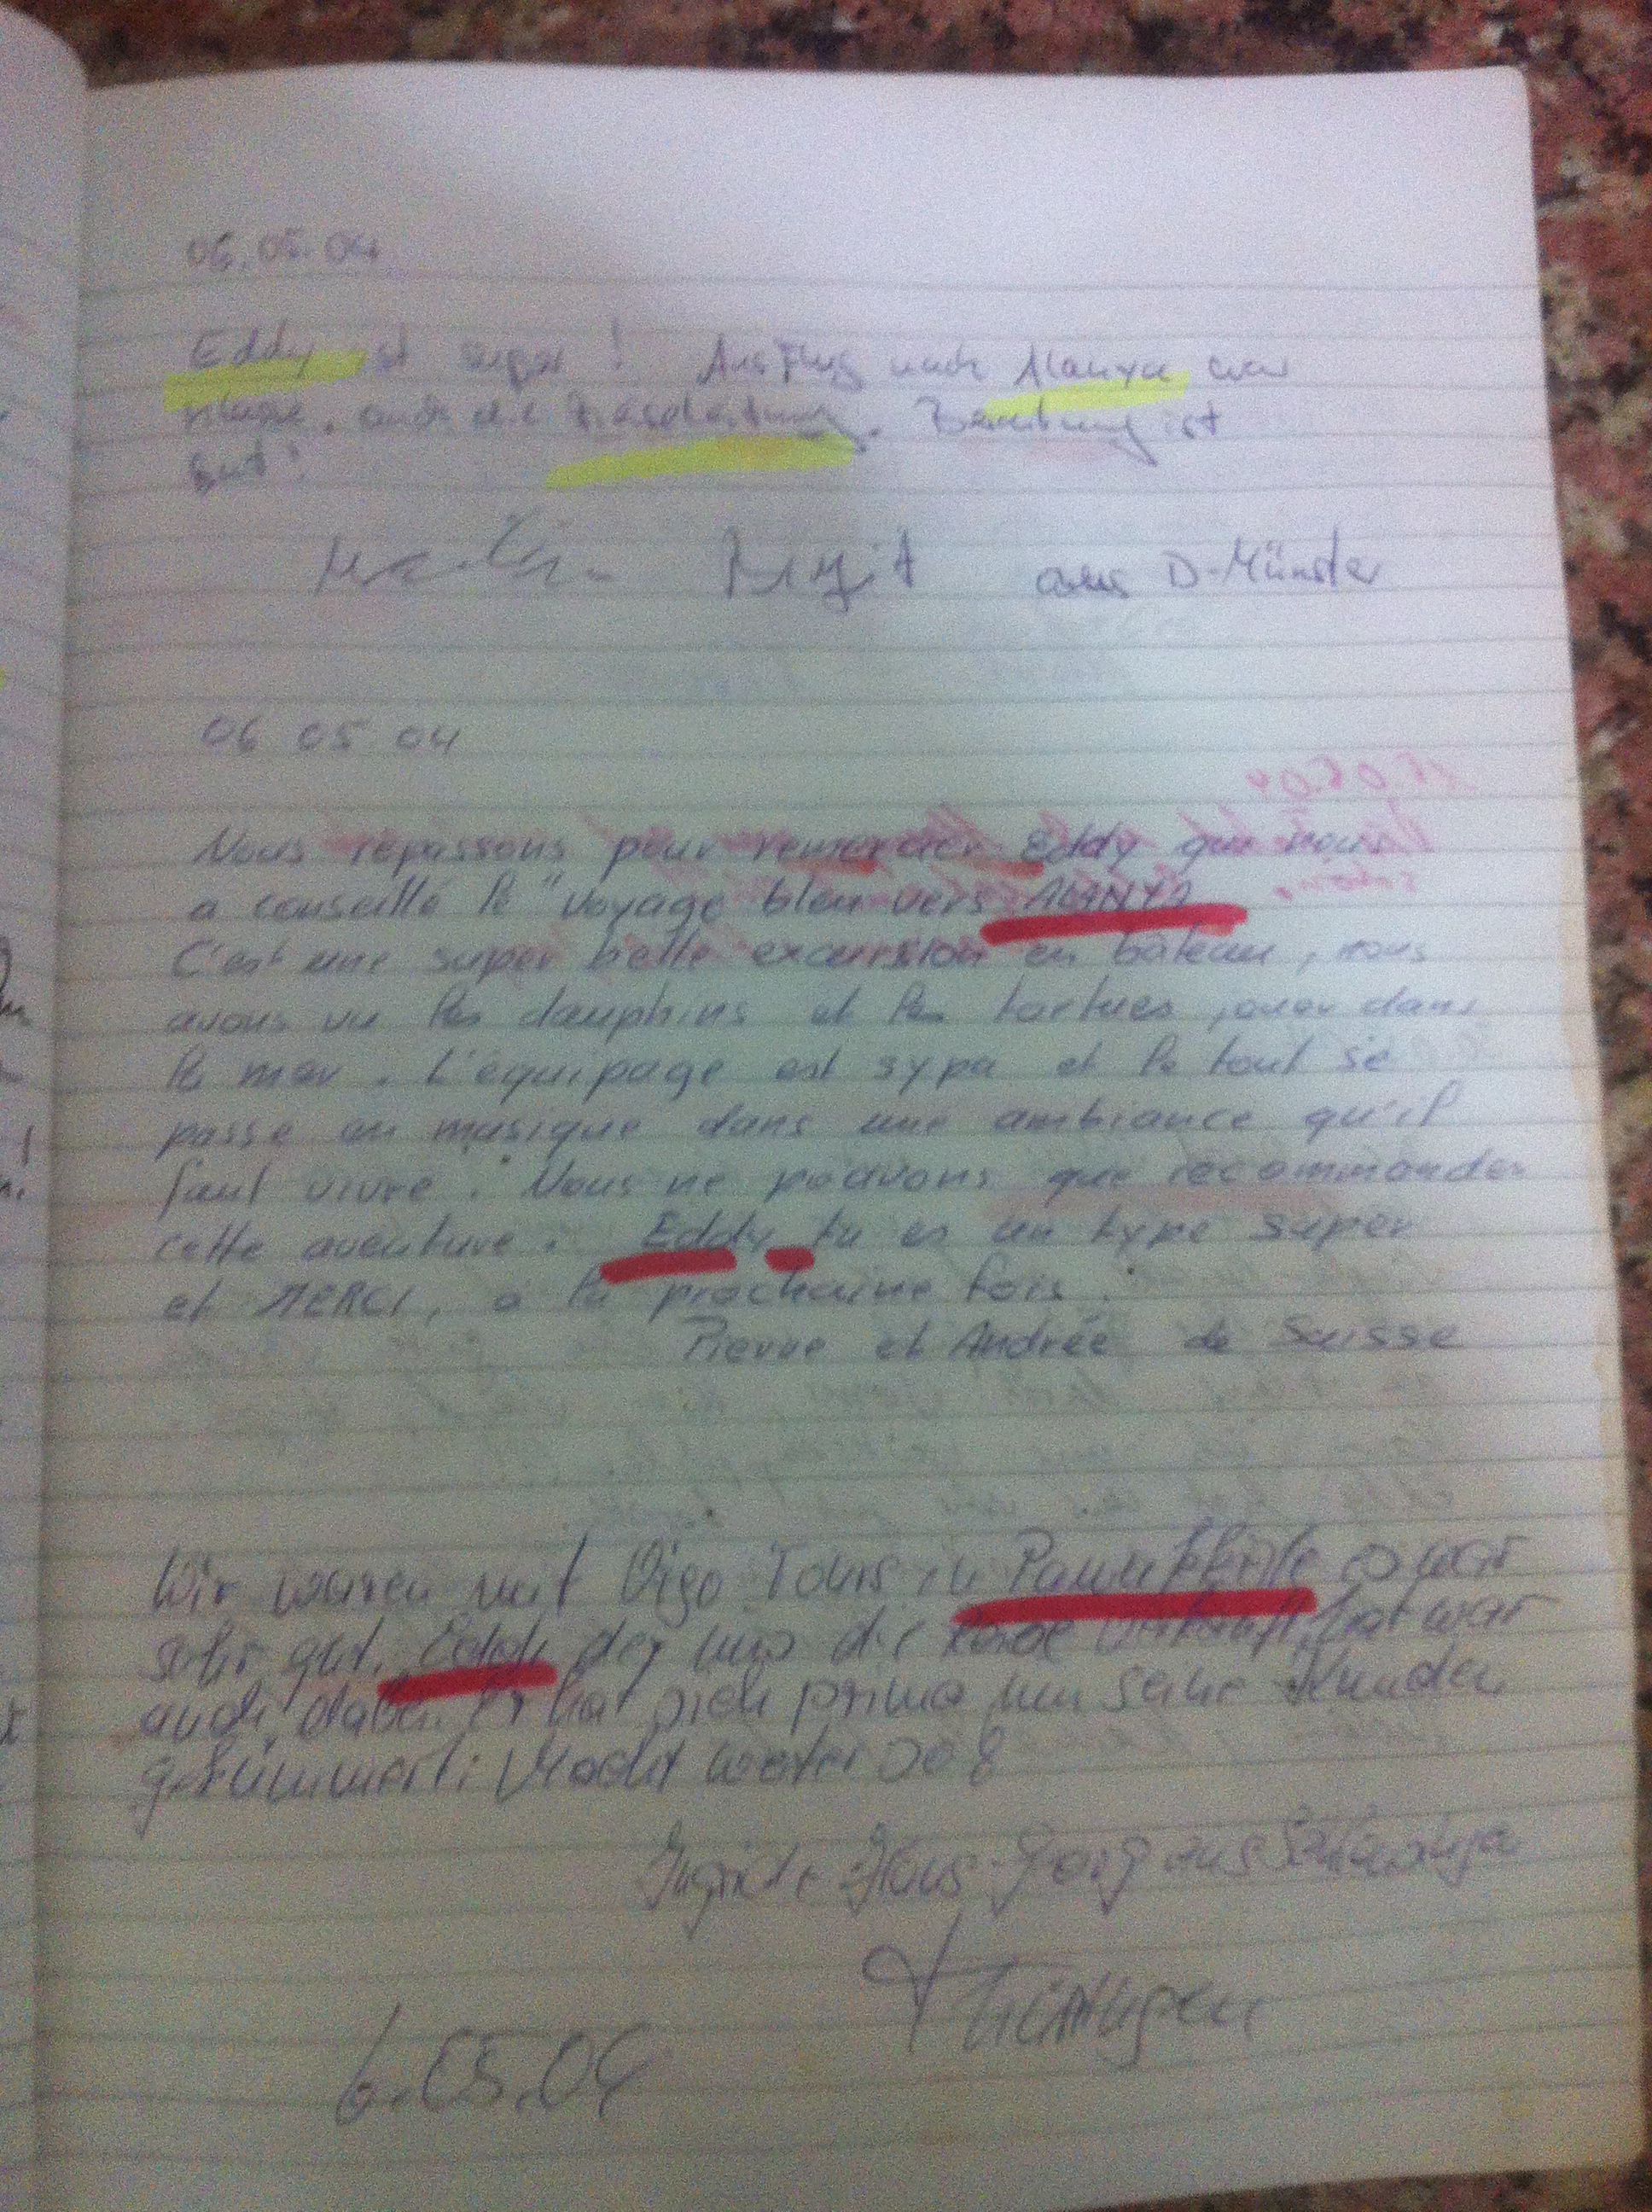 06.05.04
Eddy ist super! Ausflug nach Alanya war
klasse, auch die Reiseleitung. Beratung ist
gut!
Birgit aus D-Münster
06 05 04
Nous repassons pour remercier Eddy que nous
a conseillé le "voyage bleu vers ALANYA
C'est une super belle excursion en bâteau, nous
avons vu les dauphins et les tortues jouer dans
la mer. L'équipage est sypa et le tout se
passe en musique dans une ambiance qu'il
faut vivre. Nous ne pouvons que recommander
cette aventure. Eddy, tu es un type super
et MERCI, a la prochaine fois.
Pierre et Andrée de Suisse
Wir waren mit Vigo Tours in es war
sehr gut. der uns die Reise verkauft hat war
auch dabei. Er hat sich prima um seine Kunden
gekümmert! Macht weiter so!
Ingrid + Hans-Georg aus
Thüringen
6.05.04